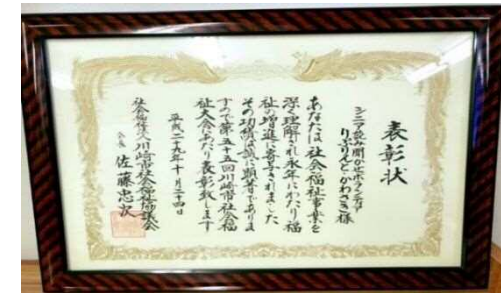 表彰状
シニア読み聞かせボランティア
りぷりんと・かわさき様
あなたは社会福祉事業を
深く理解され永年にわたり福
祉の増進に寄与されました
その功績は誠に顕著であります
よって第五十五回川崎市社会福
祉大会にあたり表彰致します
平成二十九年十月二十四日
社会福祉法人川崎市社会福祉協議会
会長 佐藤忠次